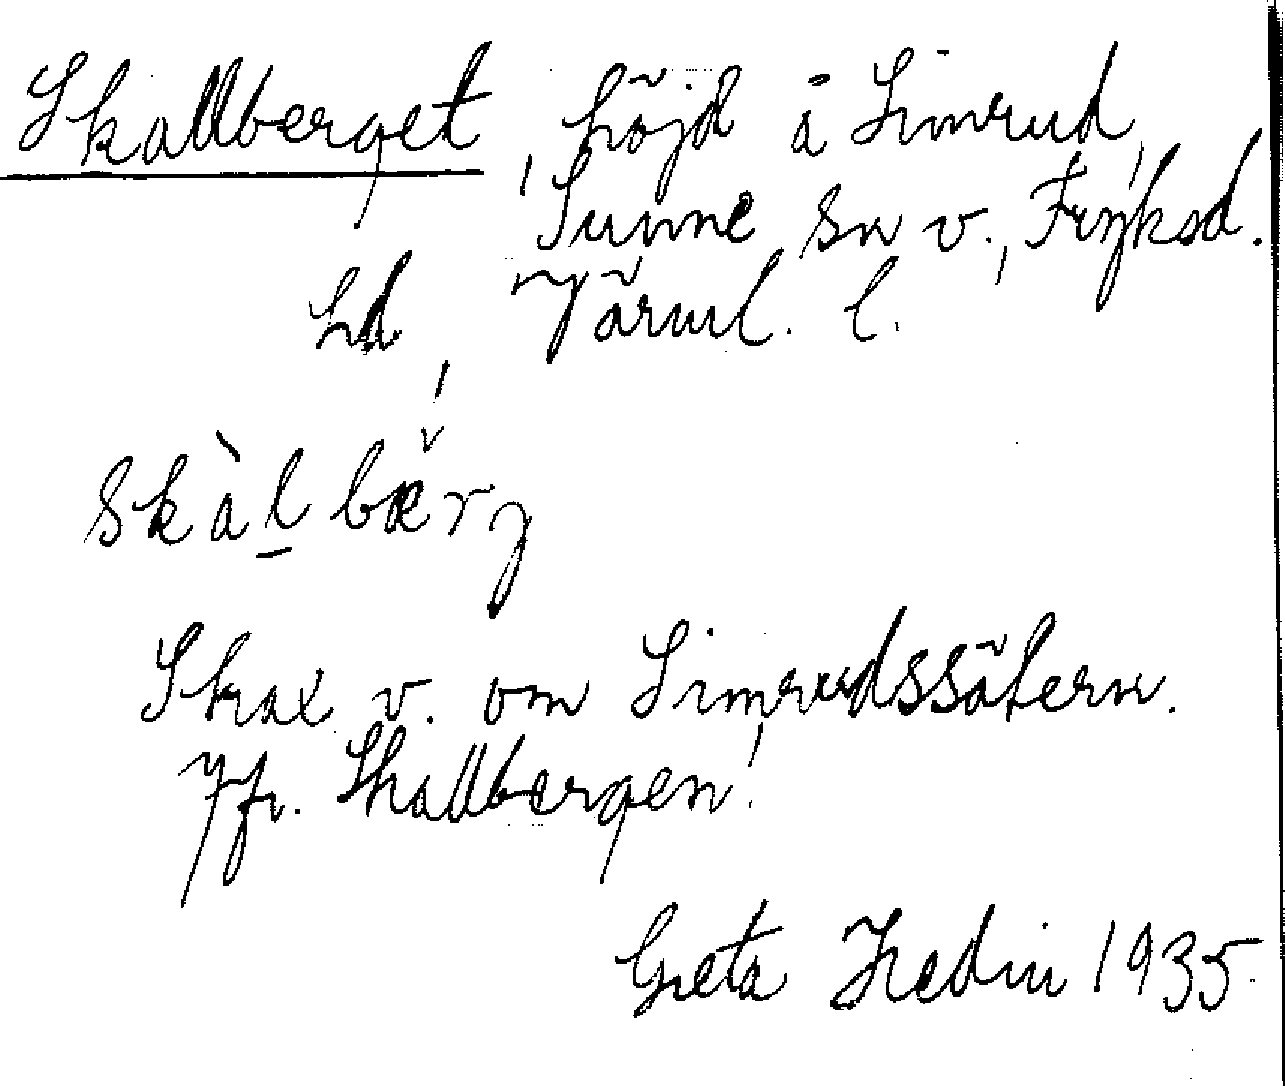 Skallberget, höjd å Simrud,
Sunne sn v., Fryksd.
hd, Värml. l.
skàl̠bæ̌rj
Strax v. om Simrudssätern.
Jfr. Skallbergen!
Greta Hedin 1935.